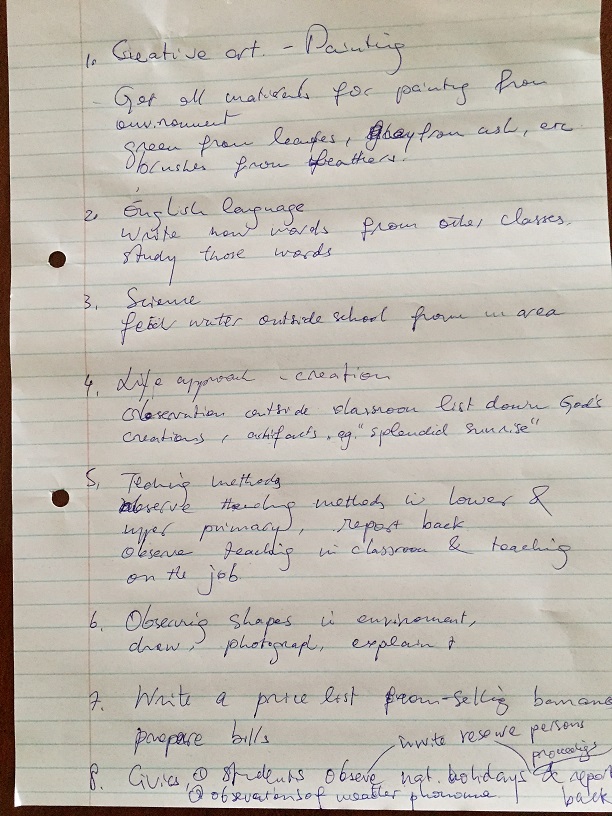 1. Creative art. - Painting
- Get all materials for painting from
environment
green from leaves, grey from ash, etc
brushes from feathers.
2. English language
Write new words from other classes.
Study those words
3. Science
water outside school from area
4. Life approach - creation
observation outside classroom list down God's
creations, artifacts, eg. "splendid sunrise"
5. Teaching methods
observe teaching methods in lower &
upper primary, report back
Observe teaching in classroom & teaching
on the job
6. Observing shapes in environment,
draw, photograph, explain
7. Write a price list from selling banana
prepare bills
invite persons
8. Civics, ① Students observe nat. holidays & report
back
② observations of weather